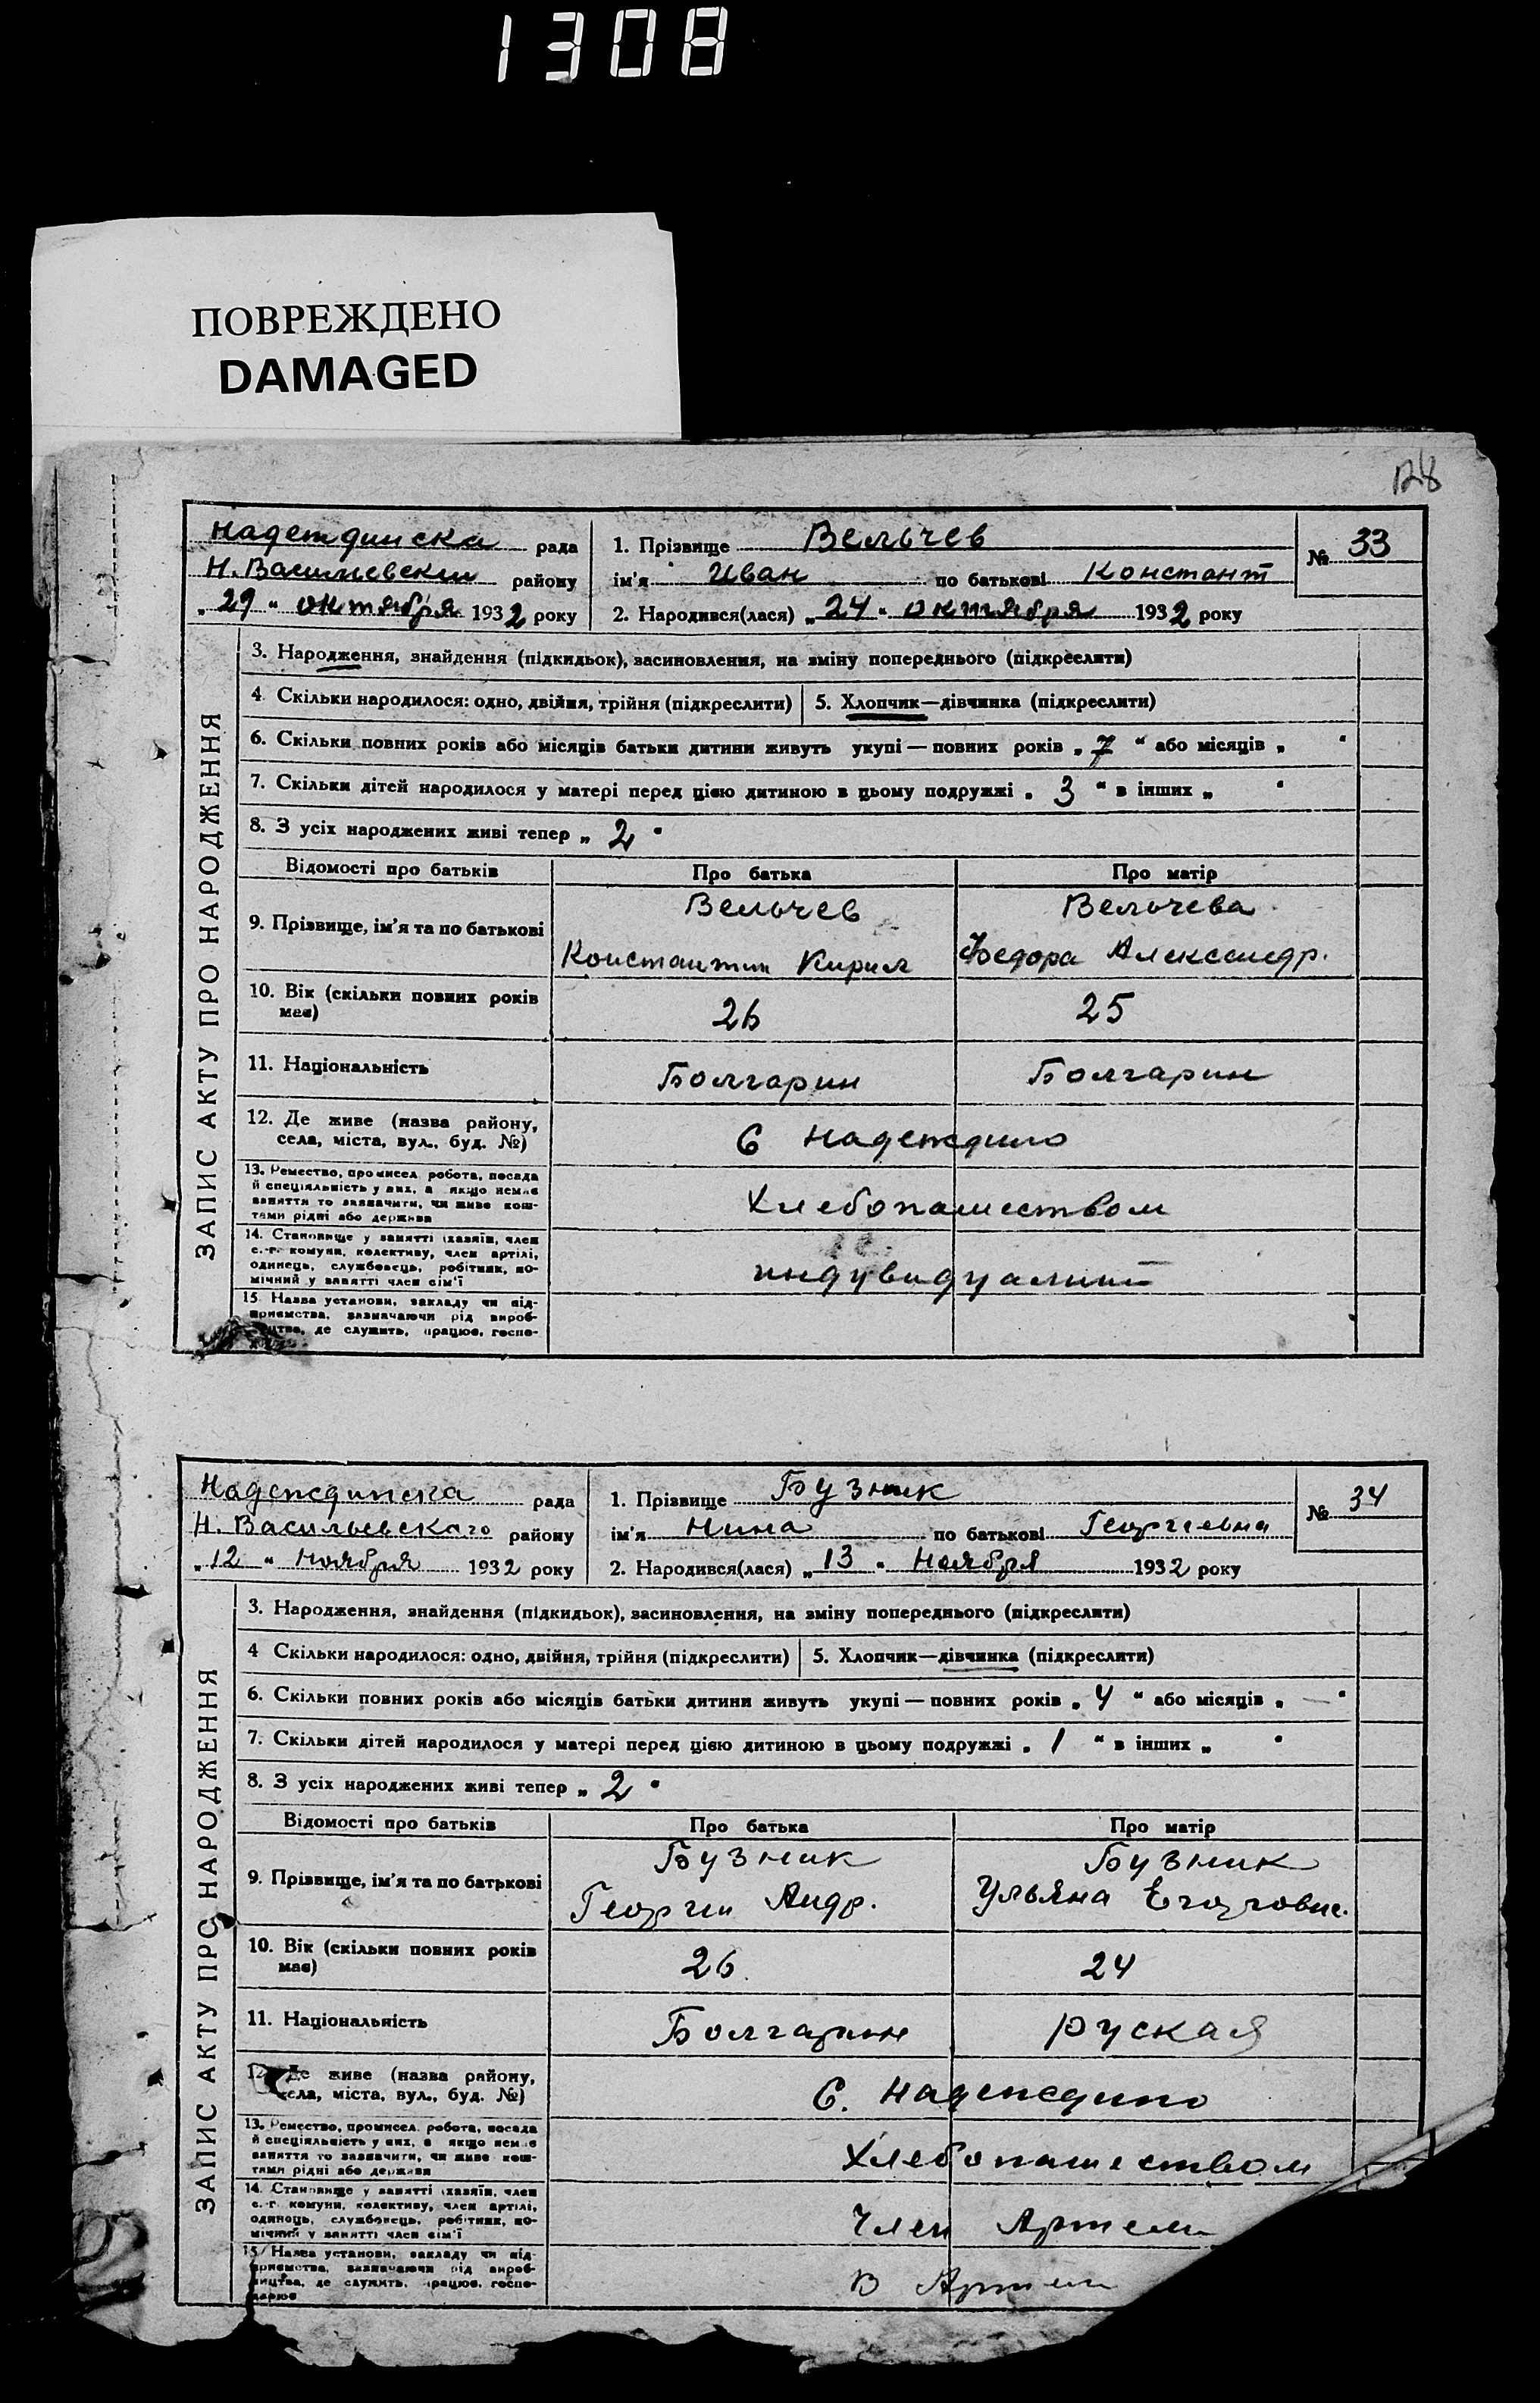 1308
ПОВРЕЖДЕНО
DAMAGED
128
Надеждинска рада
Н. Васильевский району
„29“ октября 1932 року
1. Прізвище Вельчев
ім'я Иван по батькові Констант
2. Народився(лася) „24“ октября 1932 року
№ 33
ЗАПИС АКТУ ПРО НАРОДЖЕННЯ
3. Народження, знайдення (підкидьок), засиновлення, на зміну попереднього (підкреслити)
4. Скільки народилося: одно, двійня, трійня (підкреслити) 5. Хлопчик—дівчинка (підкреслити)
6. Скільки повних років або місяців батьки дитини живуть укупі — повних років „7“ або місяців „ “
7. Скільки дітей народилося у матері перед цією дитиною в цьому подружжі „3“ в інших „ “
8. З усіх народжених живі тепер „2“
Відомості про батьків Про батька Про матір
9. Прізвище, ім'я та по батькові
Вельчев
Константин Кирил
Вельчева
Федора Александр.
10. Вік (скільки повних років
має)
26 25
11. Національність Болгарин Болгарин
12. Де живе (назва району,
села, міста, вул., буд. №)
С Надеждино
13. Ремество, промисел, робота, посада
й спеціяльність у них, а якщо немає
заняття то зазначити, чи живе кош-
тами рідні або держави
Хлебопашеством
14. Становище у занятті (хазяїн, член
с.-г. комуни, колективу, член артілі,
одинець, службовець, робітник, по-
мічний у занятті член сім'ї
индувидуалний
15. Назва установи, закладу чи під-
приємства, зазначаючи рід вироб-
ництва, де служить, працює, госпо-
Надеждинска рада
Н. Васильевскаго району
„12“ ноября 1932 року
1. Прізвище Бузник
ім'я Нина по батькові Георгиевна
2. Народився(лася) „13“ Ноября 1932 року
№ 34
ЗАПИС АКТУ ПРО НАРОДЖЕННЯ
3. Народження, знайдення (підкидьок), засиновлення, на зміну попереднього (підкреслити)
4 Скільки народилося: одно, двійня, трійня (підкреслити) 5. Хлопчик—дівчинка (підкреслити)
6. Скільки повних років або місяців батьки дитини живуть укупі — повних років „4“ або місяців „—“
7. Скільки дітей народилося у матері перед цією дитиною в цьому подружжі „1“ в інших „ “
8. З усіх народжених живі тепер „2“
Відомості про батьків Про батька Про матір
9. Прізвище, ім'я та по батькові
Бузник
Георгий Андр.
Бузник
Ульяна Егоровне.
10. Вік (скільки повних років
має)
26. 24
11. Національність Болгарин руская
12. Де живе (назва району,
села, міста, вул., буд. №)
С. Надеждино
13. Ремество, промисел, робота, посада
й спеціяльність у них, а якщо немає
заняття то зазначити, чи живе кош-
тами рідні або держави
Хлебопашеством
14. Становище у занятті (хазяїн, член
с.-г. комуни, колективу, член артілі,
одинець, службовець, робітник, по-
мічний у занятті член сім'ї
Член Артели
15. Назва установи, закладу чи під-
приємства, зазначаючи рід вироб-
ництва, де служить, працює, госпо-
дарює
В Артели